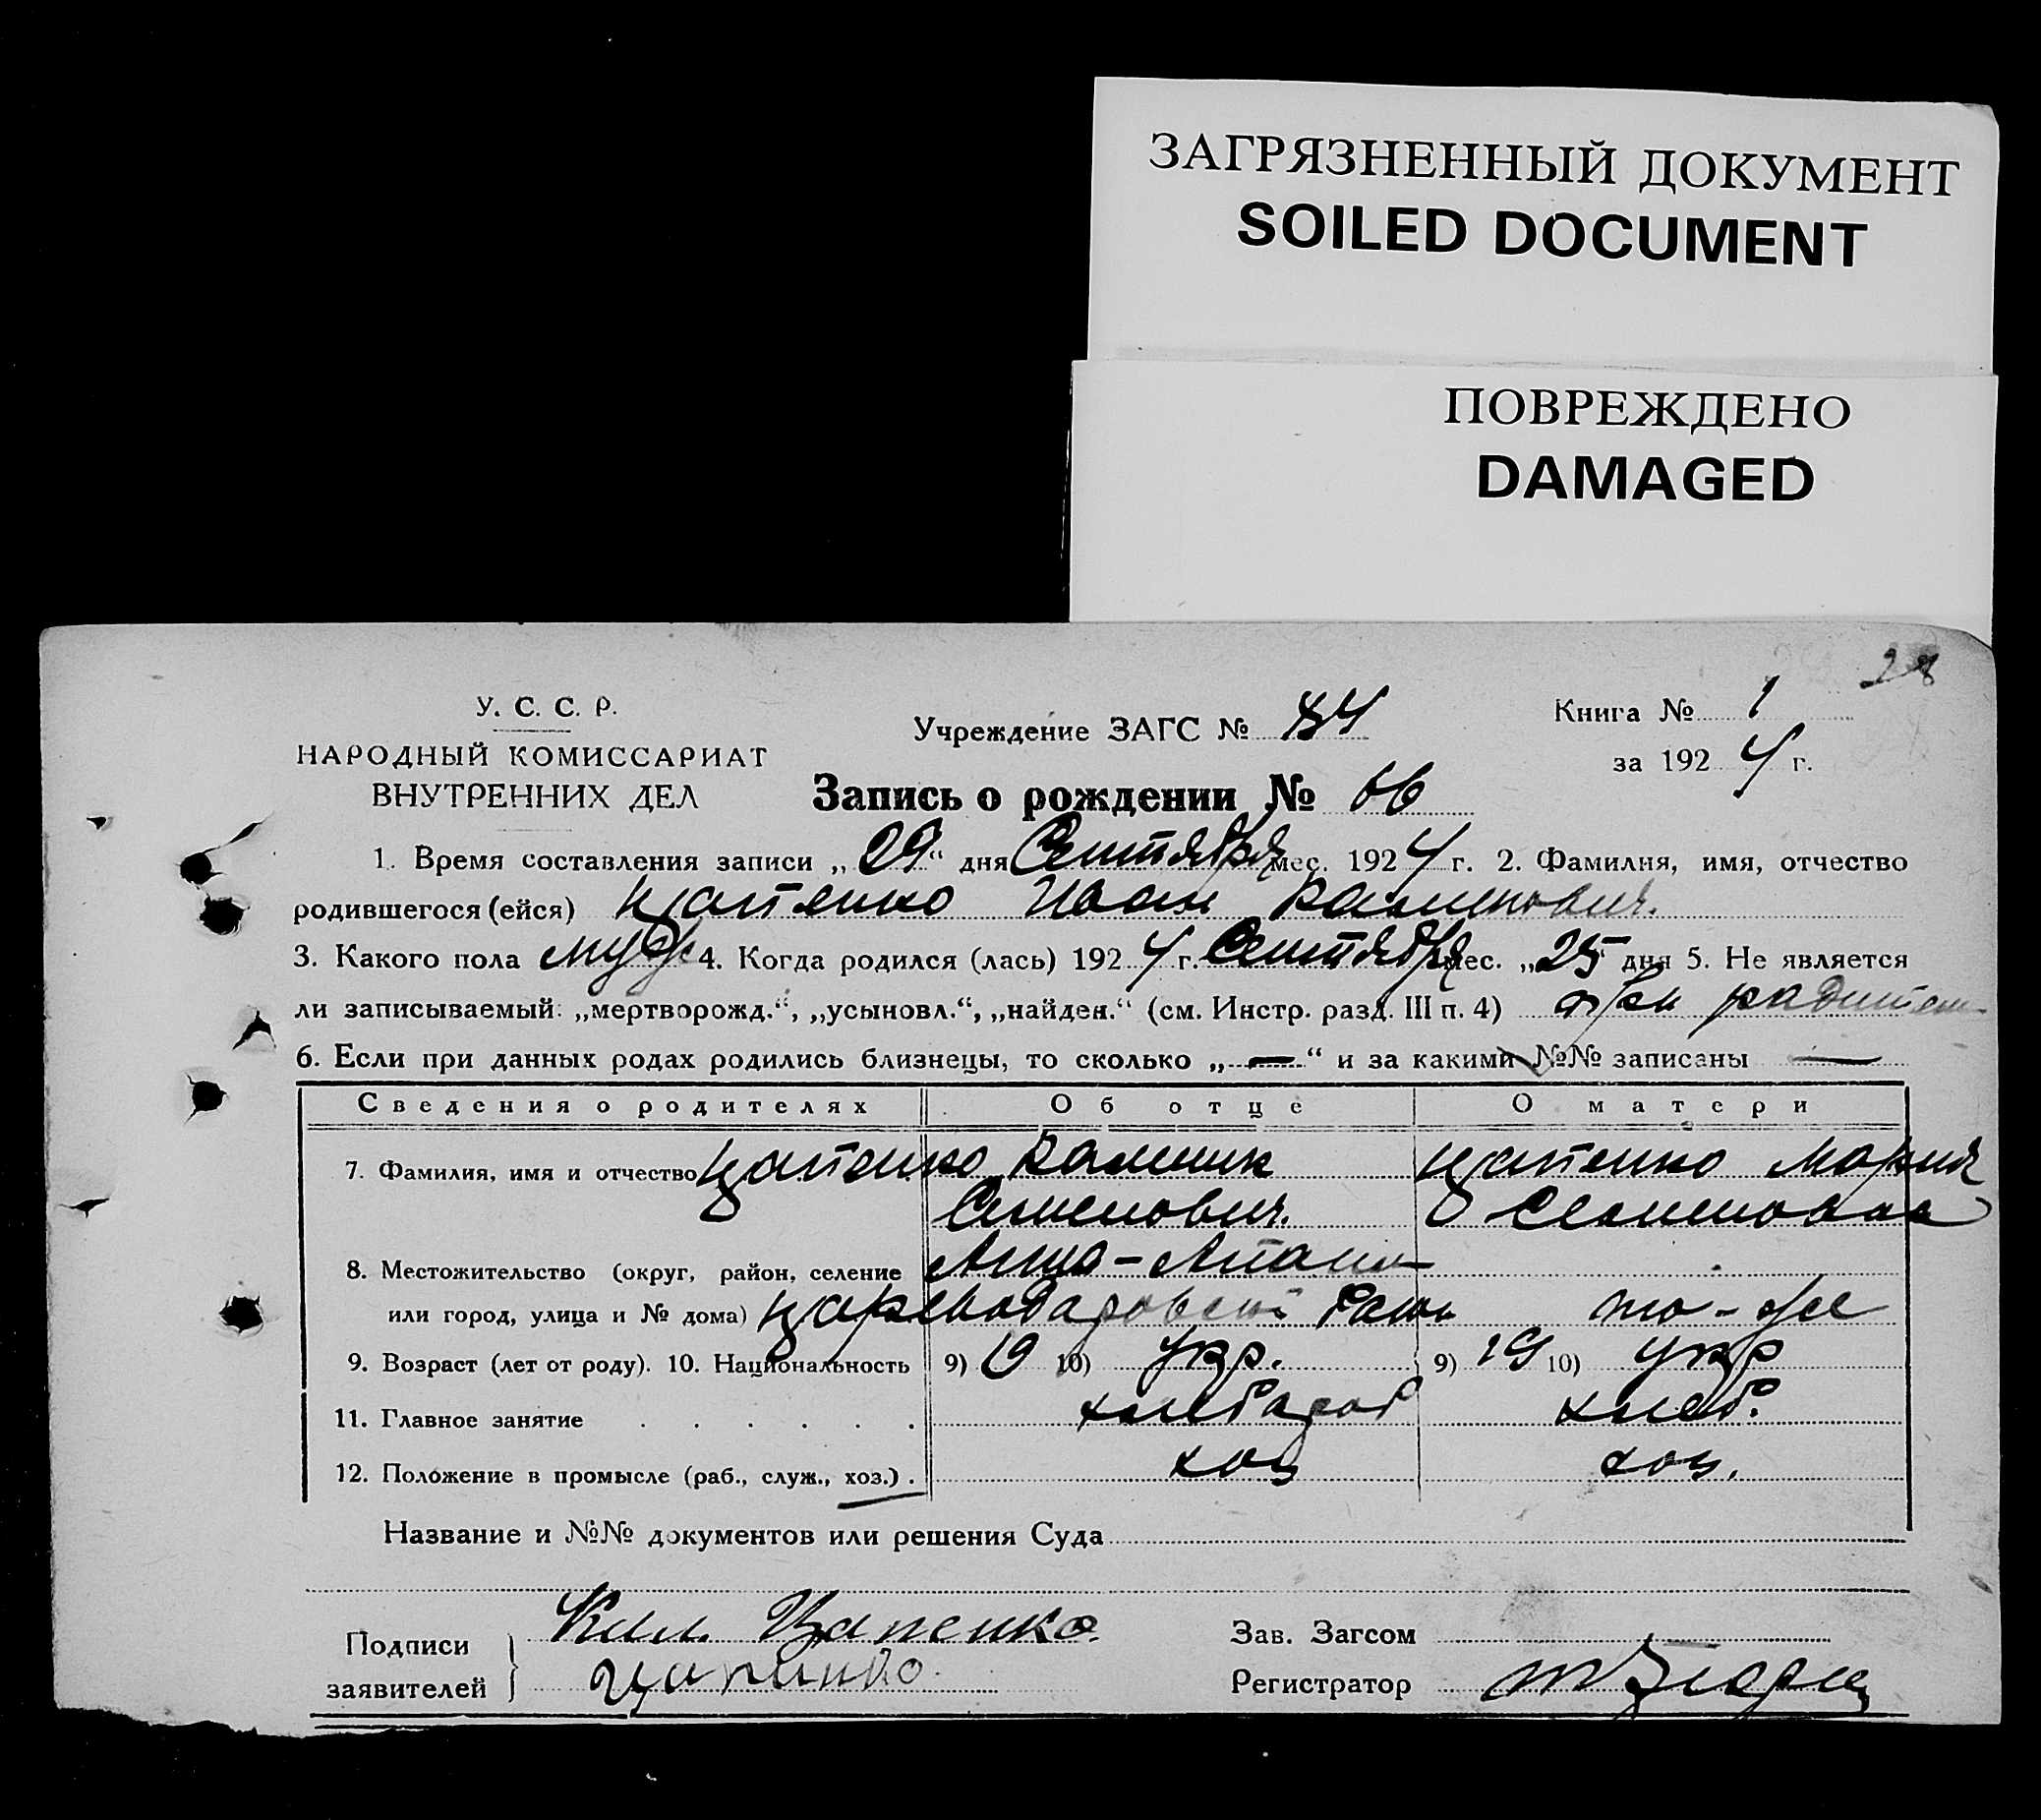 ЗАГРЯЗНЕННЫЙ ДОКУМЕНТ
SOILED DOCUMENT
ПОВРЕЖДЕНО
DAMAGED
28
У. С. С. Р.
НАРОДНЫЙ КОМИССАРИАТ
ВНУТРЕННИХ ДЕЛ
Учреждение ЗАГС №
Книга № 1
за 1924 г.
Запись о рождении № 66
1. Время составления записи „29“ дня Сентября мес. 1924 г. 2. Фамилия, имя, отчество
родившегося (ейся) Цапенко Иван
3. Какого пола муж 4. Когда родился (лась) 1924 г. Сентября мес. „25“ дня 5. Не является
ли записываемый: „мертворожд.“, „усыновл.“, „найден.“ (см. Инстр. разд. III п. 4) при
6. Если при данных родах родились близнецы, то сколько „—“ и за какими №№ записаны —
Сведения о родителях Об отце О матери
7. Фамилия, имя и отчество Цапенко Калиник Цапенко Мария
Семенович Семеновна
8. Местожительство (округ, район, селение
или город, улица и № дома) то-же
9. Возраст (лет от роду). 10. Национальность 9) 19 10) Укр. 9) 19 10) Укр
11. Главное занятие . . . . . . хлебороб хлеб.
12. Положение в промысле (раб., служ., хоз.) . хоз хоз.
Название и №№ документов или решения Суда
Подписи
заявителей
Кал. Цапенко
Цапинко
Зав. Загсом
Регистратор